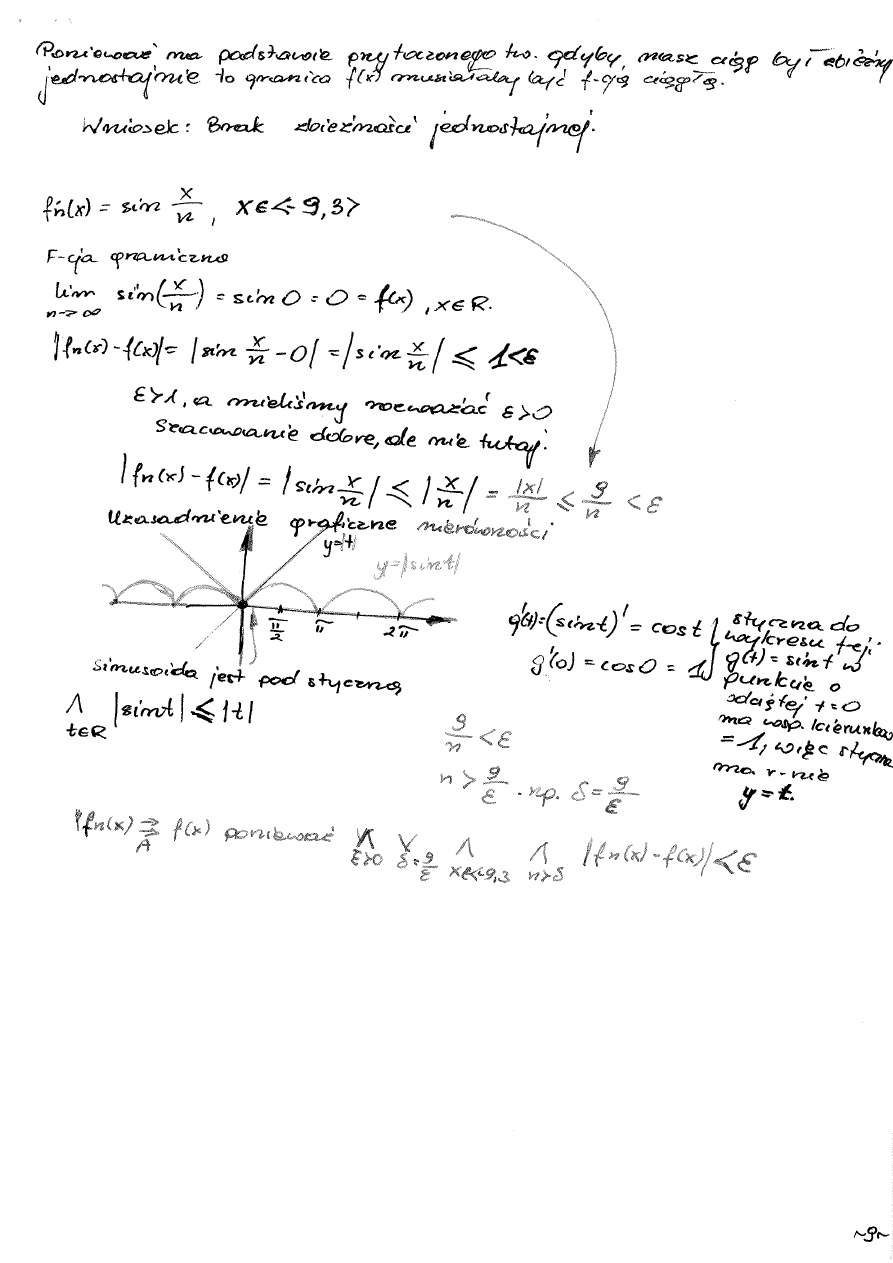 Ponieważ na podstawie przytoczonego tw. gdyby nasz ciąg był zbieżny
jednostajnie to granica f(x) musiałaby być f-cją ciągłą.
Wniosek: Brak zbieżności jednostajnej.
fn(x) = sin x/n, x∈<-9,3>
F-cja graniczna
lim n→∞ sin(x/n) = sin 0 = 0 = f(x), x∈R.
|fn(x)-f(x)| = |sin x/n - 0| = |sin x/n| ≤ 1 < ε
ε>1, a mieliśmy rozważać ε>0
Szacowanie dobre, ale nie tutaj.
|fn(x) - f(x)| = |sin x/n| ≤ |x/n| = |x|/n ≤ 9/n < ε
Uzasadnienie graficzne nierówności
y=|t|
y=|sint|
π/2 π 2π
g'(t)=(sint)' = cost
g'(0) = cos0 = 1
styczna do
wykresu f-cji
g(t) = sint w
punkcie o
odciętej t=0
ma wsp. kierunkow
= 1, więc styczna
ma r-nie
y = t.
Sinusoida jest pod styczną
Λ t∈R |sint| ≤ |t|
9/n < ε
n > 9/ε . np. δ = 9/ε
fn(x) ⇉ A f(x) ponieważ Λ ε>0 V δ=9/ε Λ x∈<-9,3 Λ n>δ |fn(x)-f(x)| < ε
~9~